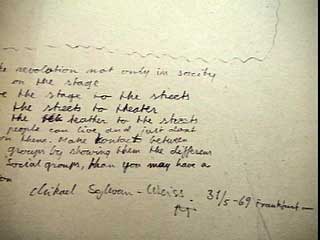 ke revolution not only in society
on the stage
e the stage to the streets
the streets to theater
the teatter to the streets
people can live and just dont
on them. Make contact between
groups by showing them the differen
Social groups, than you may have a
on
Mikael 31/5-69 Frankfurt